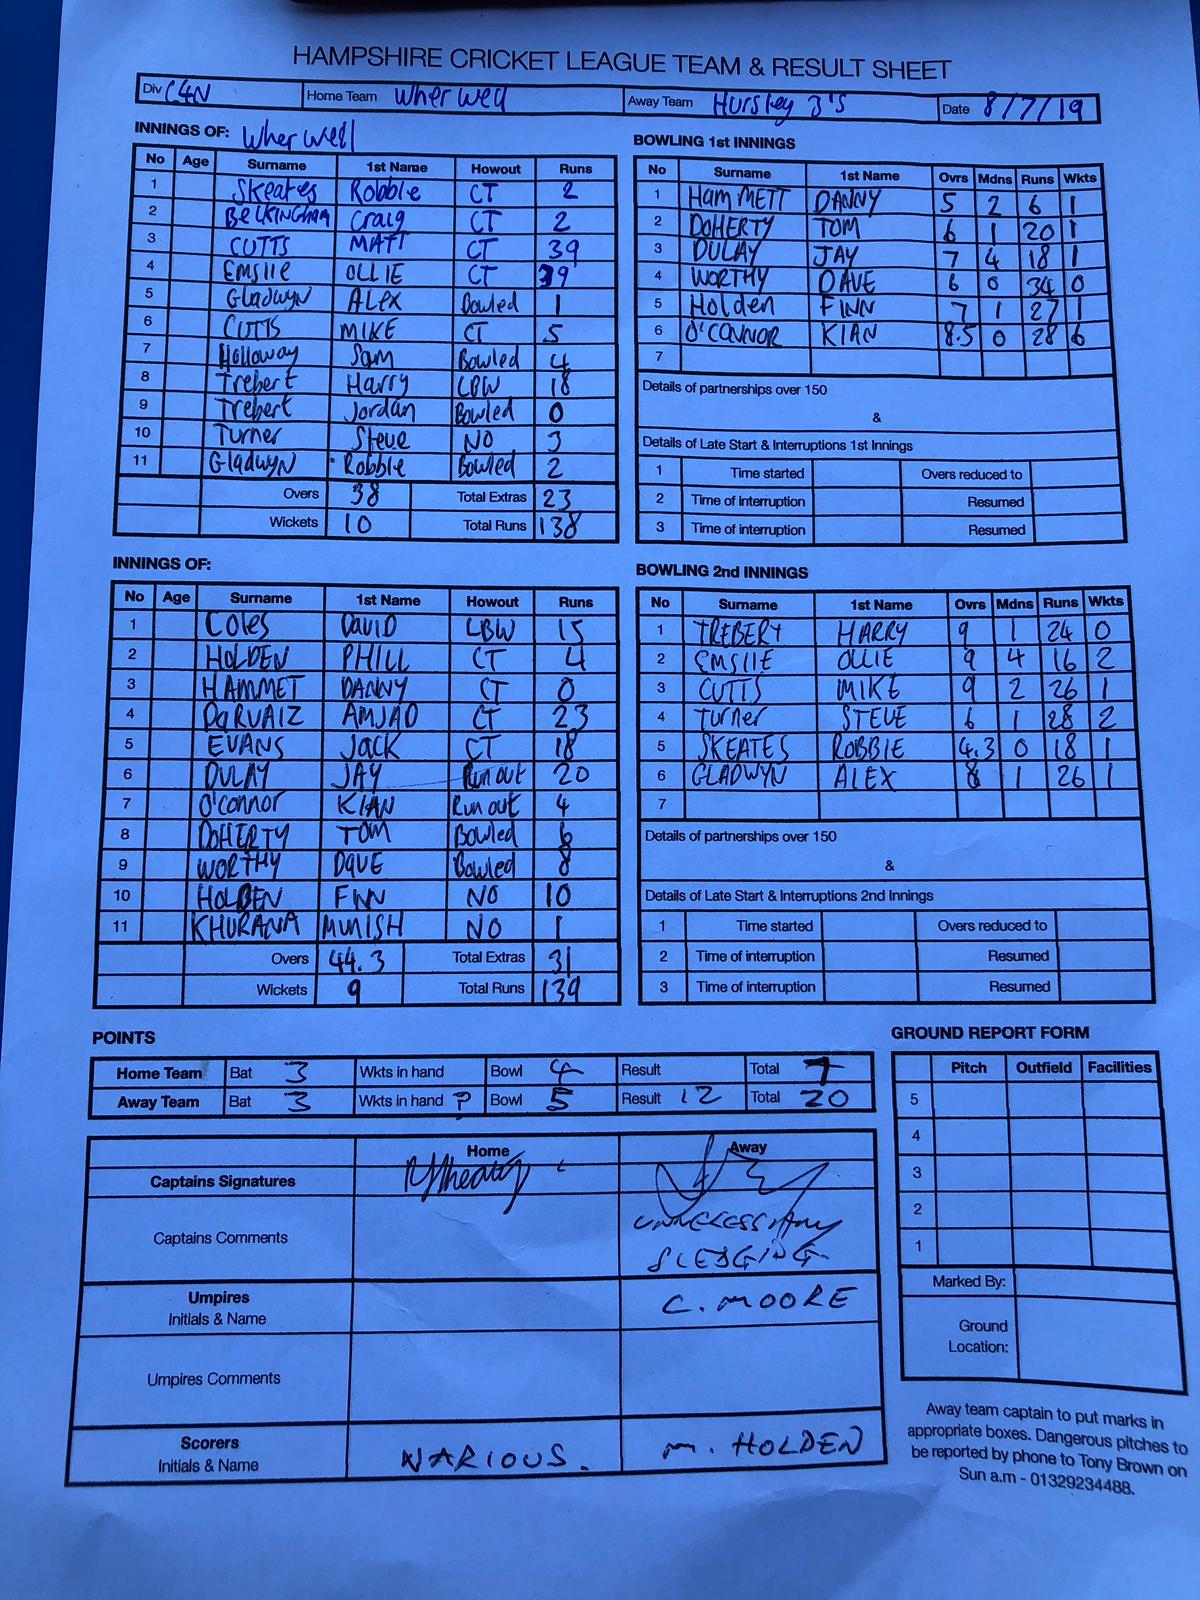 HAMPSHIRE CRICKET LEAGUE TEAM & RESULT SHEET
Div C4N Home Team Wherwell Away Team Hursley 3's Date 8/7/19
INNINGS OF: Wherwell
No Age Surname 1st Name Howout Runs
1 Skeates Robbie CT 2
2 BeckINGHAM Craig CT 2
3 CUTTS MATT CT 39
4 Emslie OLLIE CT 39
5 Gladwyn ALEX Bowled 1
6 CUTTS MIKE CT 5
7 Holloway Sam Bowled 4
8 Trebert Harry LBW 18
9 Trebert Jordan Bowled 0
10 Turner Steve NO 3
11 Gladwyn Robbie Bowled 2
Overs 38 Total Extras 23
Wickets 10 Total Runs 138
BOWLING 1st INNINGS
No Surname 1st Name Ovrs Mdns Runs Wkts
1 HamMETT DANNY 5 2 6 1
2 DOHERTY TOM 6 1 20 1
3 DULAY JAY 7 4 18 1
4 WORTHY DAVE 6 0 34 0
5 Holden FINN 7 1 27 1
6 O'CONNOR KIAN 8.5 0 28 6
7
Details of partnerships over 150
&
Details of Late Start & Interruptions 1st Innings
1 Time started Overs reduced to
2 Time of interruption Resumed
3 Time of interruption Resumed
INNINGS OF:
No Age Surname 1st Name Howout Runs
1 Coles David LBW 15
2 HOLDEN PHILL CT 4
3 HAMMET DANNY CT 0
4 PaRVAIZ AMJAD CT 23
5 EVANS Jack CT 18
6 DULAY JAY Run out 20
7 O'connor KIAN Run out 4
8 DOHERTY TOM Bowled 6
9 WORTHY DAVE Bowled 8
10 HOLDEN FINN NO 10
11 KHURANA MUNISH NO 1
Overs 44.3 Total Extras 31
Wickets 9 Total Runs 139
BOWLING 2nd INNINGS
No Surname 1st Name Ovrs Mdns Runs Wkts
1 TREBERT HARRY 9 1 24 0
2 EMSLIE OLLIE 9 4 16 2
3 CUTTS MIKE 9 2 26 1
4 Turner STEVE 6 1 28 2
5 SKEATES ROBBIE 4.3 0 18 1
6 GLADWYN ALEX 8 1 26 1
7
Details of partnerships over 150
&
Details of Late Start & Interruptions 2nd Innings
1 Time started Overs reduced to
2 Time of interruption Resumed
3 Time of interruption Resumed
POINTS
Home Team Bat 3 Wkts in hand Bowl 4 Result Total 7
Away Team Bat 3 Wkts in hand ? Bowl 5 Result 12 Total 20
Home Away
Captains Signatures
Captains Comments UNNECESSARY
SLEDGING
Umpires
Initials & Name C. MOORE
Umpires Comments
Scorers
Initials & Name VARIOUS. M. HOLDEN
GROUND REPORT FORM
Pitch Outfield Facilities
5
4
3
2
1
Marked By:
Ground
Location:
Away team captain to put marks in
appropriate boxes. Dangerous pitches to
be reported by phone to Tony Brown on
Sun a.m - 01329234488.